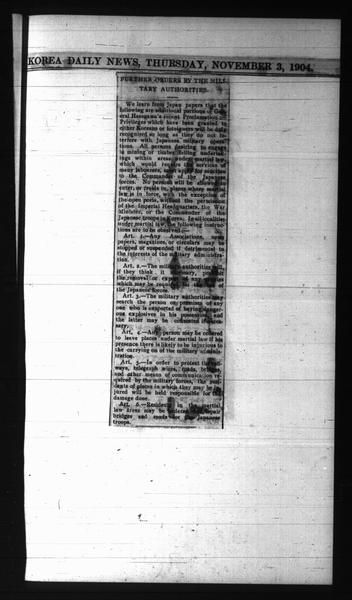 KOREA DAILY NEWS, THURSDAY, NOVEMBER 3, 1904.
FURTHER ORDERS BY THE MILI-
TARY AUTHORITIES.
We learn from Japan papers that the
following are additional portions of Gen-
eral Hasegawa's recent Proclamation:—
Privileges which have been granted to
either Koreans or foreigners will be duly
recognised so long as they do not in-
terfere with Japanese military opera-
tions. All persons desiring to engage
in mining or timber felling undertak-
ings within areas under martial law
which would require the services of
many labourers, must apply for sanction
to the Commander of the Japanese
forces. No person will be allowed to
enter, or reside in, places where martial
law is in force, with the exception of
the open ports, without the permission
of the Imperial Headquarters, the War
Minister, or the Commander of the
Japanese troops in Korea. In all localities
under martial law, the following instruc-
tions are to be observed:—
Art. 1.—Any Associations, news-
papers, magazines, or circulars may be
stopped or suspended if detrimental to
the interests of the military administra-
tion.
Art. 2.—The military authorities may
if they think it necessary,
the removal or export of
which may be required
the Japanese forces.
Art. 3.—The military authorities may
search the person or premises of any
one who is suspected of having danger-
ous explosives in his possession, and
the latter may be confiscated if neces-
sary.
Art. 4.—Any person may be ordered
to leave places under martial law if his
presence there is likely to be injurious to
the carrying on of the military adminis-
tration.
Art. 5.—In order to protect the rail-
ways, telegraph wires, roads, bridges,
and other means of communication re-
quired by the military forces, the resi-
dents of places in which they may be in-
jured will be held responsible for the
damage done.
Art. 6.—Residents in the martial
law areas may be ordered to repair
bridges and roads for the Japanese
troops.